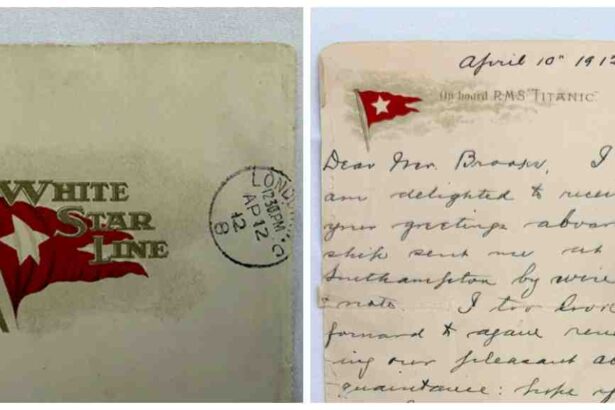 WHITE
STAR
LINE
LONDON
12.30PM
AP 12
12
8
April 10th 191
On board R.M.S. "TITANIC"
Dear Mr.
I
am delighted to
your greetings
ship sent me at
Southampton by wire
& note. I too look
forward to again
ing our pleasant ac
quaintance: hope